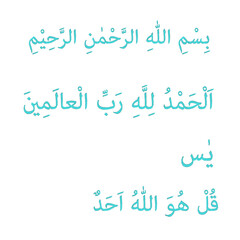 بِسْمِ اللهِ الرَّحْمٰنِ الرَّحِيْمِ
اَلْحَمْدُ لِلَّهِ رَبِّ الْعالَمِينَ
يٰس
قُلْ هُوَ اللهُ اَحَدٌ